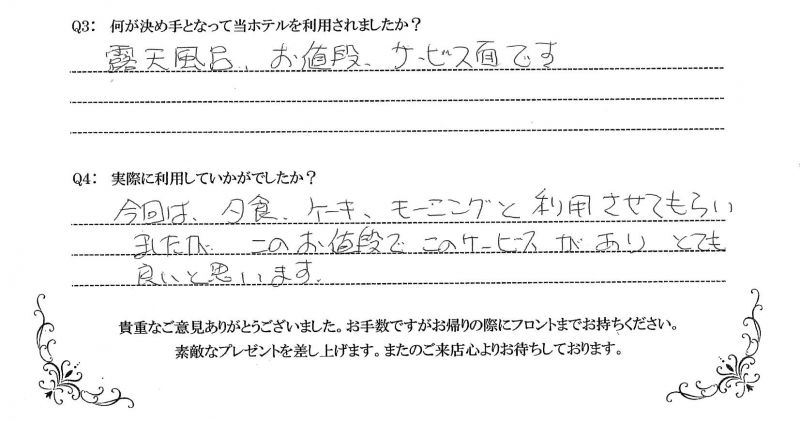 Q3: 何が決め手となって当ホテルを利用されましたか？
露天風呂、お値段、サービス面です
Q4: 実際に利用していかがでしたか？
今回は、夕食、ケーキ、モーニングと利用させてもらい
ましたが このお値段でこのサービスがあり とても
良いと思います。
貴重なご意見ありがとうございました。お手数ですがお帰りの際にフロントまでお持ちください。
素敵なプレゼントを差し上げます。またのご来店心よりお待ちしております。